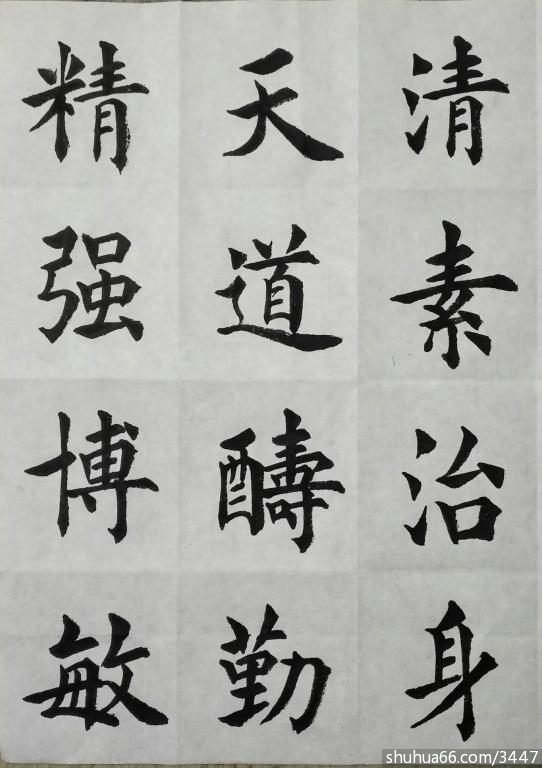 清素治身
天道醻勤
精强博敏
shuhua66.com/3447